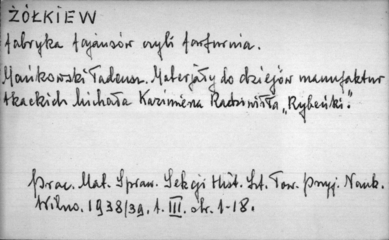 ŻÓŁKIEW
fabryka fajansów czyli farfurnia.
Mańkowski Tadeusz. Materjały do dziejów manufaktur
tkackich Michała Kazimierza Radziwiłła „Rybeńki".
Prac. Mat. Spraw. Sekcji Hist. Szt. Tow. Przyj. Nauk.
Wilno. 1938/39. t. III. str. 1-18.